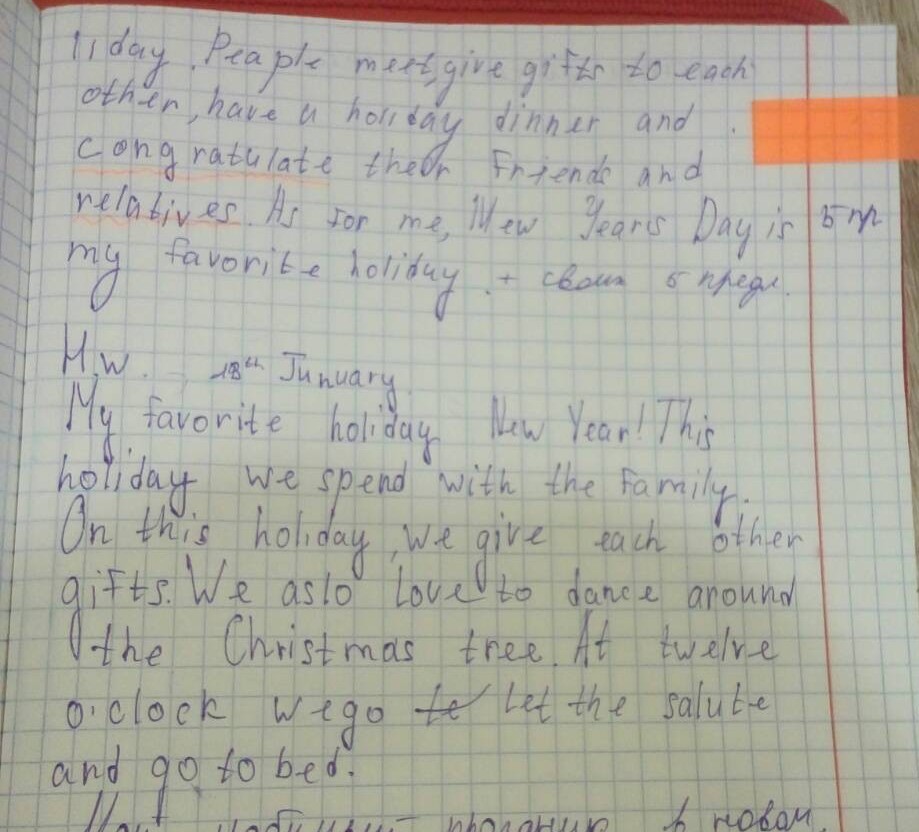 liday. Peaple meet, give gifts to each
other, have a holiday dinner and
congratulate their Friends and
relatives. As for me, New Years Day is 5 пр
my favorite holiday. + своих 5 предл.
H.w. 18th Junuary
My favorite holiday New Year! This
holiday we spend with the family.
On this holiday, we give each other
gifts. We aslo love to dance around
the Christmas tree. At twelve
o'clock we go let the salute
and go to bed.
в новом